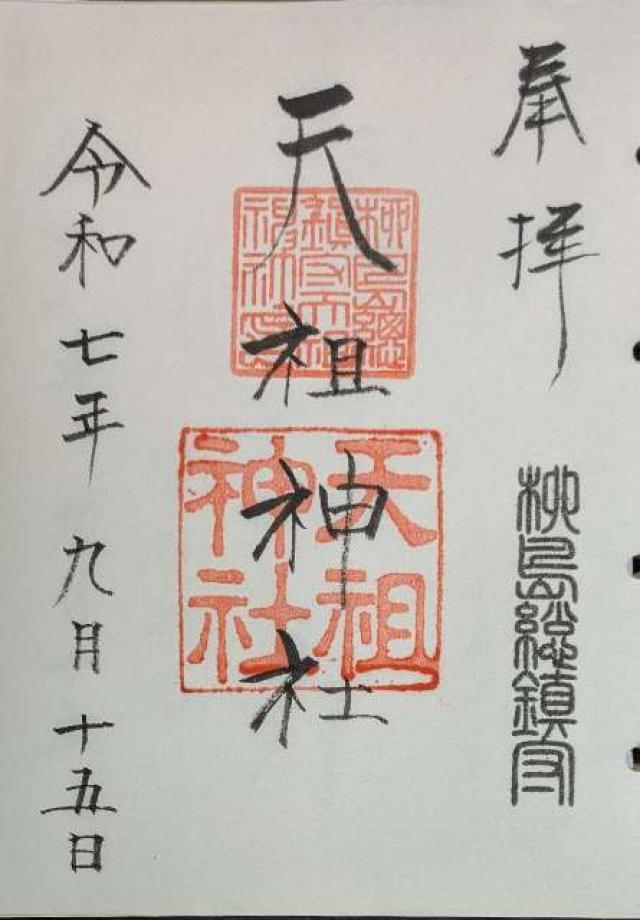 奉拝
柳島總鎮守
天祖神社
柳島總
鎮守天祖
天祖
神社
令和七年九月十五日